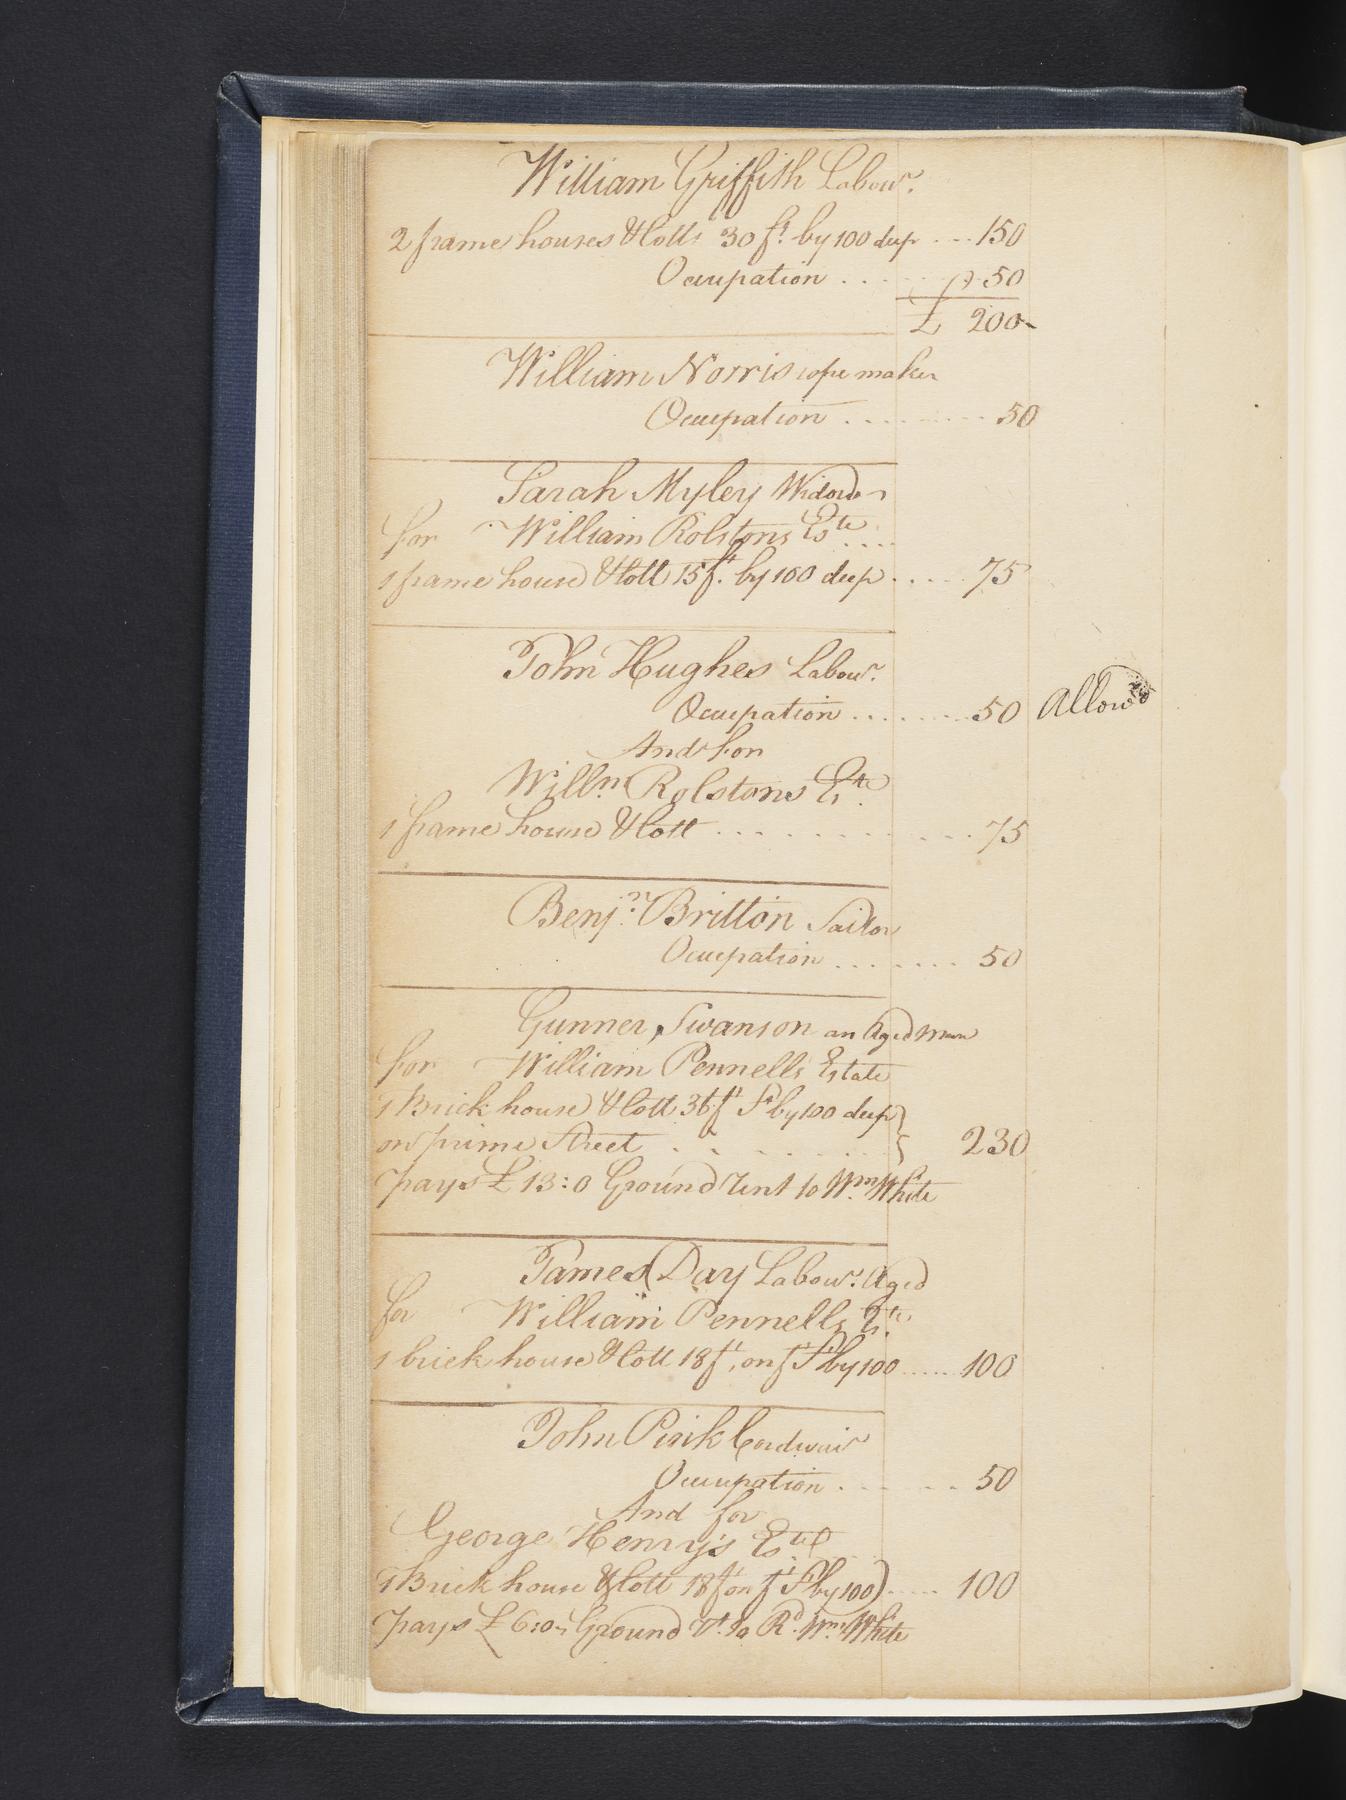 William Griffith Labour.
2 frame houses & lotts 30 ft. by 100 deep ... 150
Occupation ... 50
£ 200
William Norris rope maker
Occupation ........ 50
Sarah Myley Widow
for William Rolstons Este ....
1 frame house & lott 15 ft. by 100 deep ..... 75
John Hughes Labour.
Occupation ........ 50 Allow'd
And for
Willm Rolstons Este.
1 frame house & lott ........... 75
Benjn. Britton Sailor
Occupation ........ 50
Gunner Swanson an Aged man
for William Pennells Estate
1 Brick house & lott 36 ft St by 100 deep }
on prime Street ........ } 230
pays £ 13:0 Ground Rent to Wm. White
James Day Labour. Aged
for William Pennells Este.
1 brick house & lott 18 ft, on ft St by 100 ..... 100
John Pink Cordwair
Occupation ...... 50
And for
George Henry's Este
1 Brick house & lott 18 f on ft St by 100) ..... 100
pays £ 6:0 Ground rt. to Rd. Wm. White